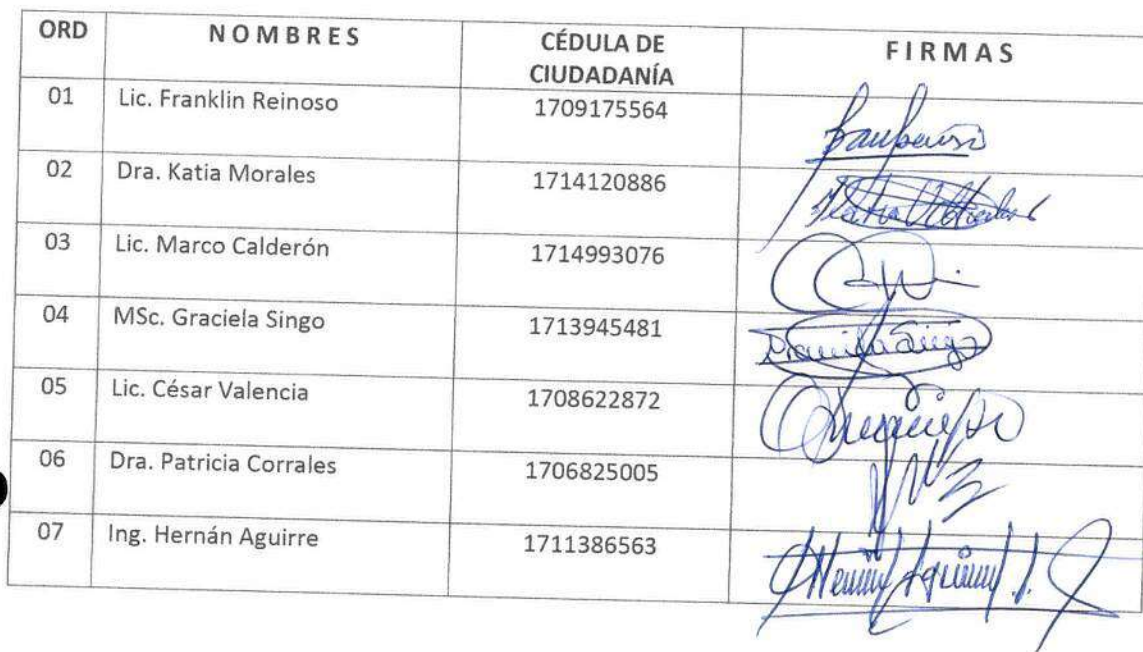 ORD NOMBRES CÉDULA DE CIUDADANÍA FIRMAS
01 Lic. Franklin Reinoso 1709175564
02 Dra. Katia Morales 1714120886
03 Lic. Marco Calderón 1714993076
04 MSc. Graciela Singo 1713945481
05 Lic. César Valencia 1708622872
06 Dra. Patricia Corrales 1706825005
07 Ing. Hernán Aguirre 1711386563